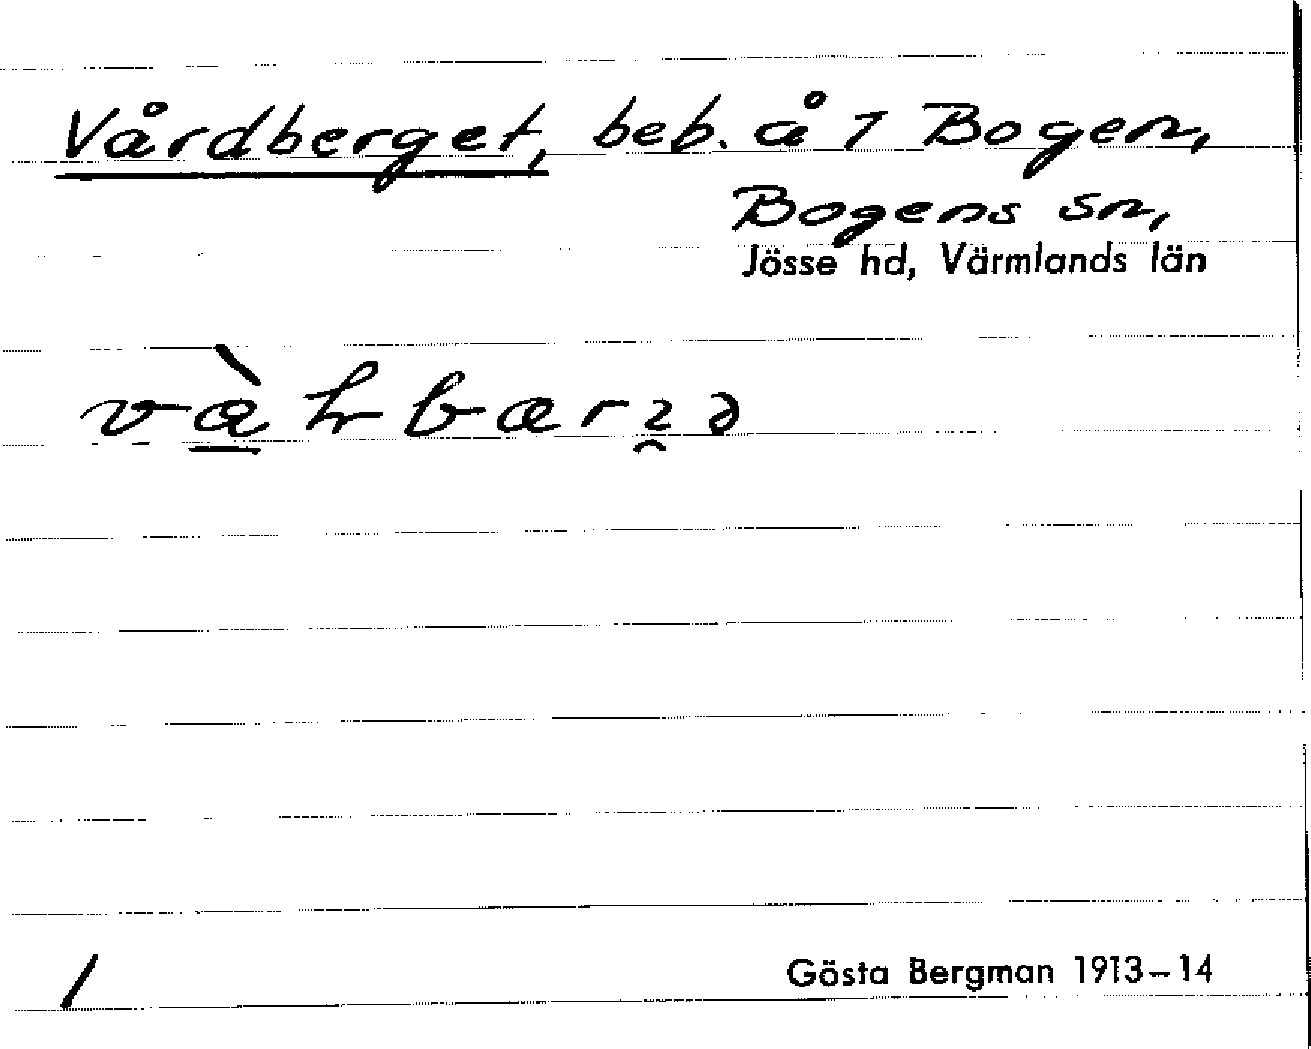 Vårdberget, beb. å 1 Bogen,
Bogens sn,
Jösse hd, Värmlands län
/
Gösta Bergman 1913–14